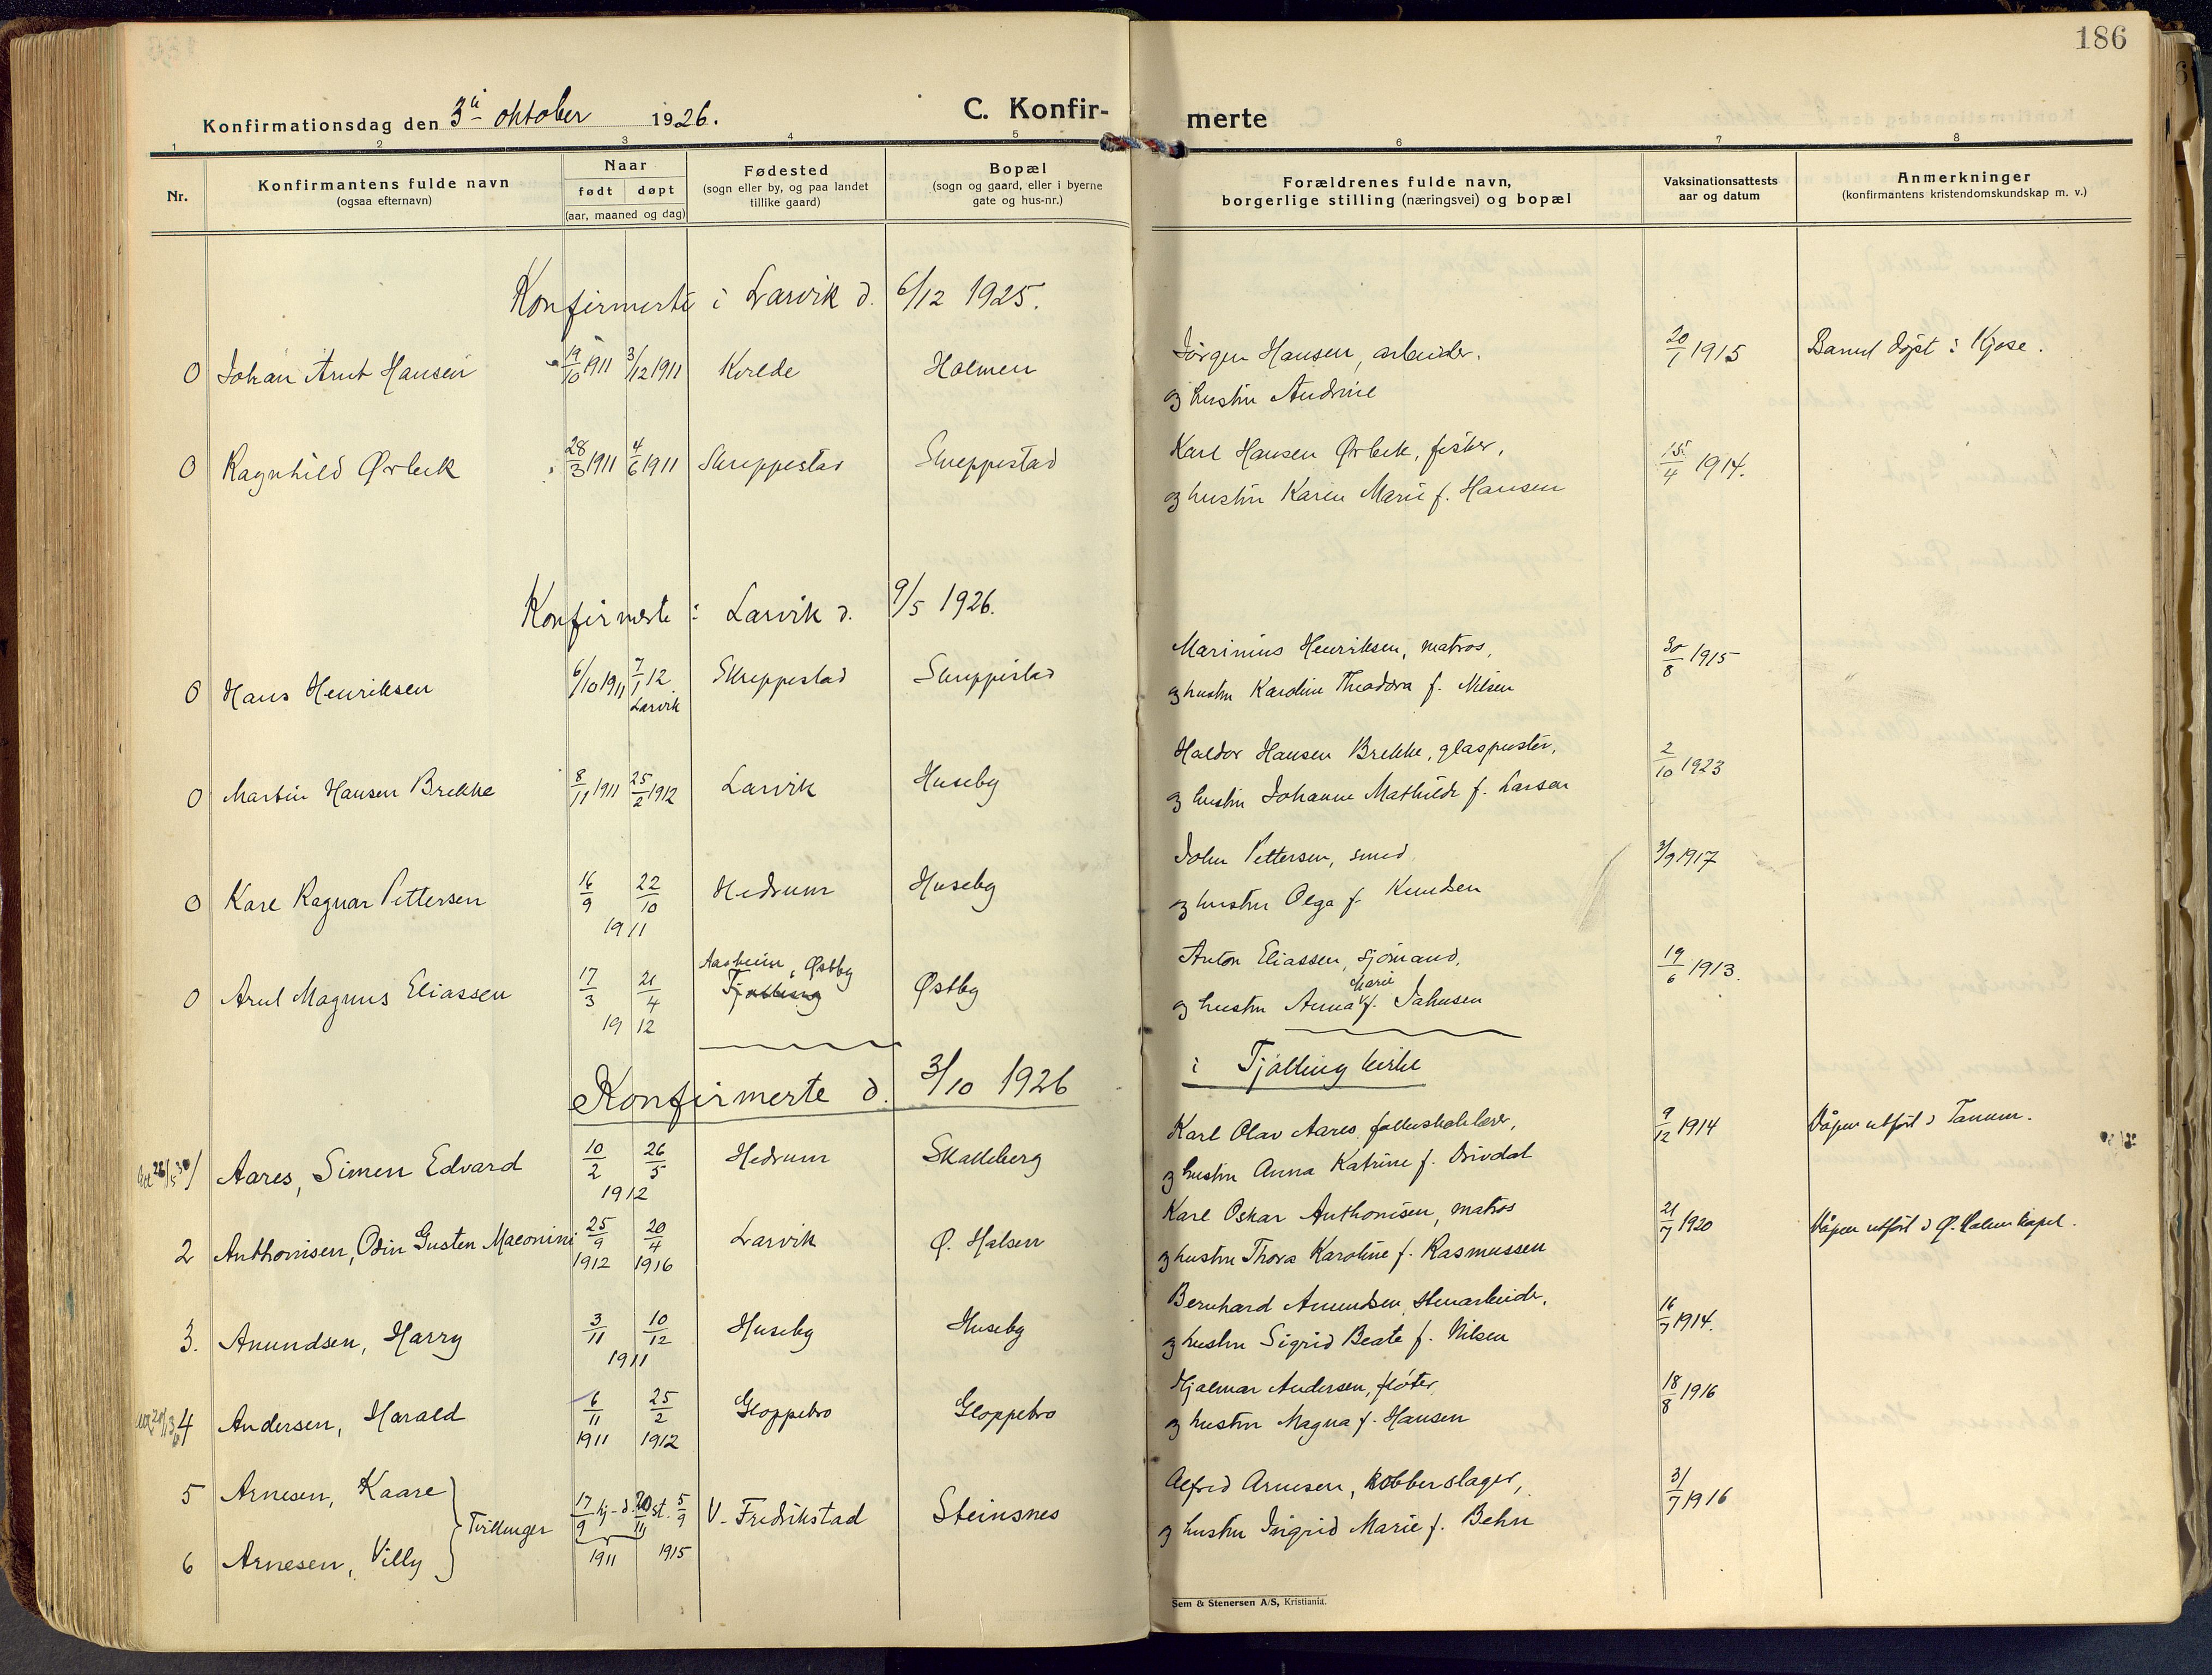 186
Konfirmationsdag den 3die oktober 1926.
C. Konfir-
merte
1 2 3 4 5 6 7 8
Nr.
Konfirmantens fulde navn
(ogsaa efternavn)
Naar
født døpt
(aar, maaned og dag)
Fødested
(sogn eller by, og paa landet
tillike gaard)
Bopæl
(sogn og gaard, eller i byerne
gate og hus-nr.)
Forældrenes fulde navn,
borgerlige stilling (næringsvei) og bopæl
Vaksinationsattests
aar og datum
Anmerkninger
(konfirmantens kristendomskundskap m. v.)
Konfirmerte i Larvik d. 6/12 1925.
0 Johan Arnt Hansen 19/10 1911 3/12 1911 Kvelde Holmen Jörgen Hansen, arbeider, 20/1 1915 Barnet døpt i Kjose.
og hustru Andrine
0 Ragnhild Ørbek 28/3 1911 4/6 1911 Skreppestad Skreppestad Karl Hansen Ørbek, fisker, 15/4 1914.
og hustru Karen Marie f. Hansen
Konfirmerte i Larvik d. 9/5 1926.
0 Hans Henriksen 6/10 1911 7/1 12 Larvik Skreppestad Skreppestad Marinius Henriksen, matros, 30/8 1915
og hustru Karoline Theodora f. Nilsen
0 Martin Hansen Brekke 8/11 1911 25/2 1912 Larvik Huseby Haldor Hansen Brekke, glaspuster, 2/10 1923
og hustru Johanne Mathilde f. Larsen
0 Kare Ragnar Pettersen 16/9 22/10 1911 Hedrum Huseby John Pettersen, smed 3/9 1917
og hustru Olga f. Knudsen
0 Arnl Magnus Eliassen 17/3 21/4 1912 Aasheim, Østby Tjølling Østby Anton Eliassen, sjömand, 19/6 1913.
og hustru Anna Marie f. Jahnsen
Konfirmerte d. 3/10 1926 i Tjølling kirke
1 Aares, Simen Edvard 10/2 26/5 1912 Hedrum Skalleberg Karl Olav Aares, folkeskolelærer, 9/12 1914 Dåpen utført i Tanum.
og hustru Anna Katrine f. Osivdal
2 Anthonisen, Odin Gusten Maeonini 25/9 1912 20/4 1916 Larvik Ø. Halsen Karl Oskar Anthonisen, matros 21/7 1920 Dåpen utført i Ø. Halsen kapel.
og hustru Thora Karoline f. Rasmussen
3. Amundsen, Harry 3/11 10/12 1911 Huseby Huseby Bernhard Amundsen, stenarbeider, 16/7 1914.
og hustru Sigrid Beate f. Nilsen
4 Andersen, Harald 6/11 1911 25/2 1912 Gloppebro Gloppebro Hjalmar Andersen, fløter, 18/8 1916
og hustru Magna f. Hansen
5 Arnesen, Kaare
6 Arnesen, Villy
Tvillinger 17/9 1911 hj-d. 20/11 st. 5/9 1915 V. Fredrikstad Steinsnes Alfred Arnesen, kobberslager, 3/7 1916
og hustru Ingrid Marie f. Behn
Sem & Stenersen A/S, Kristiania.